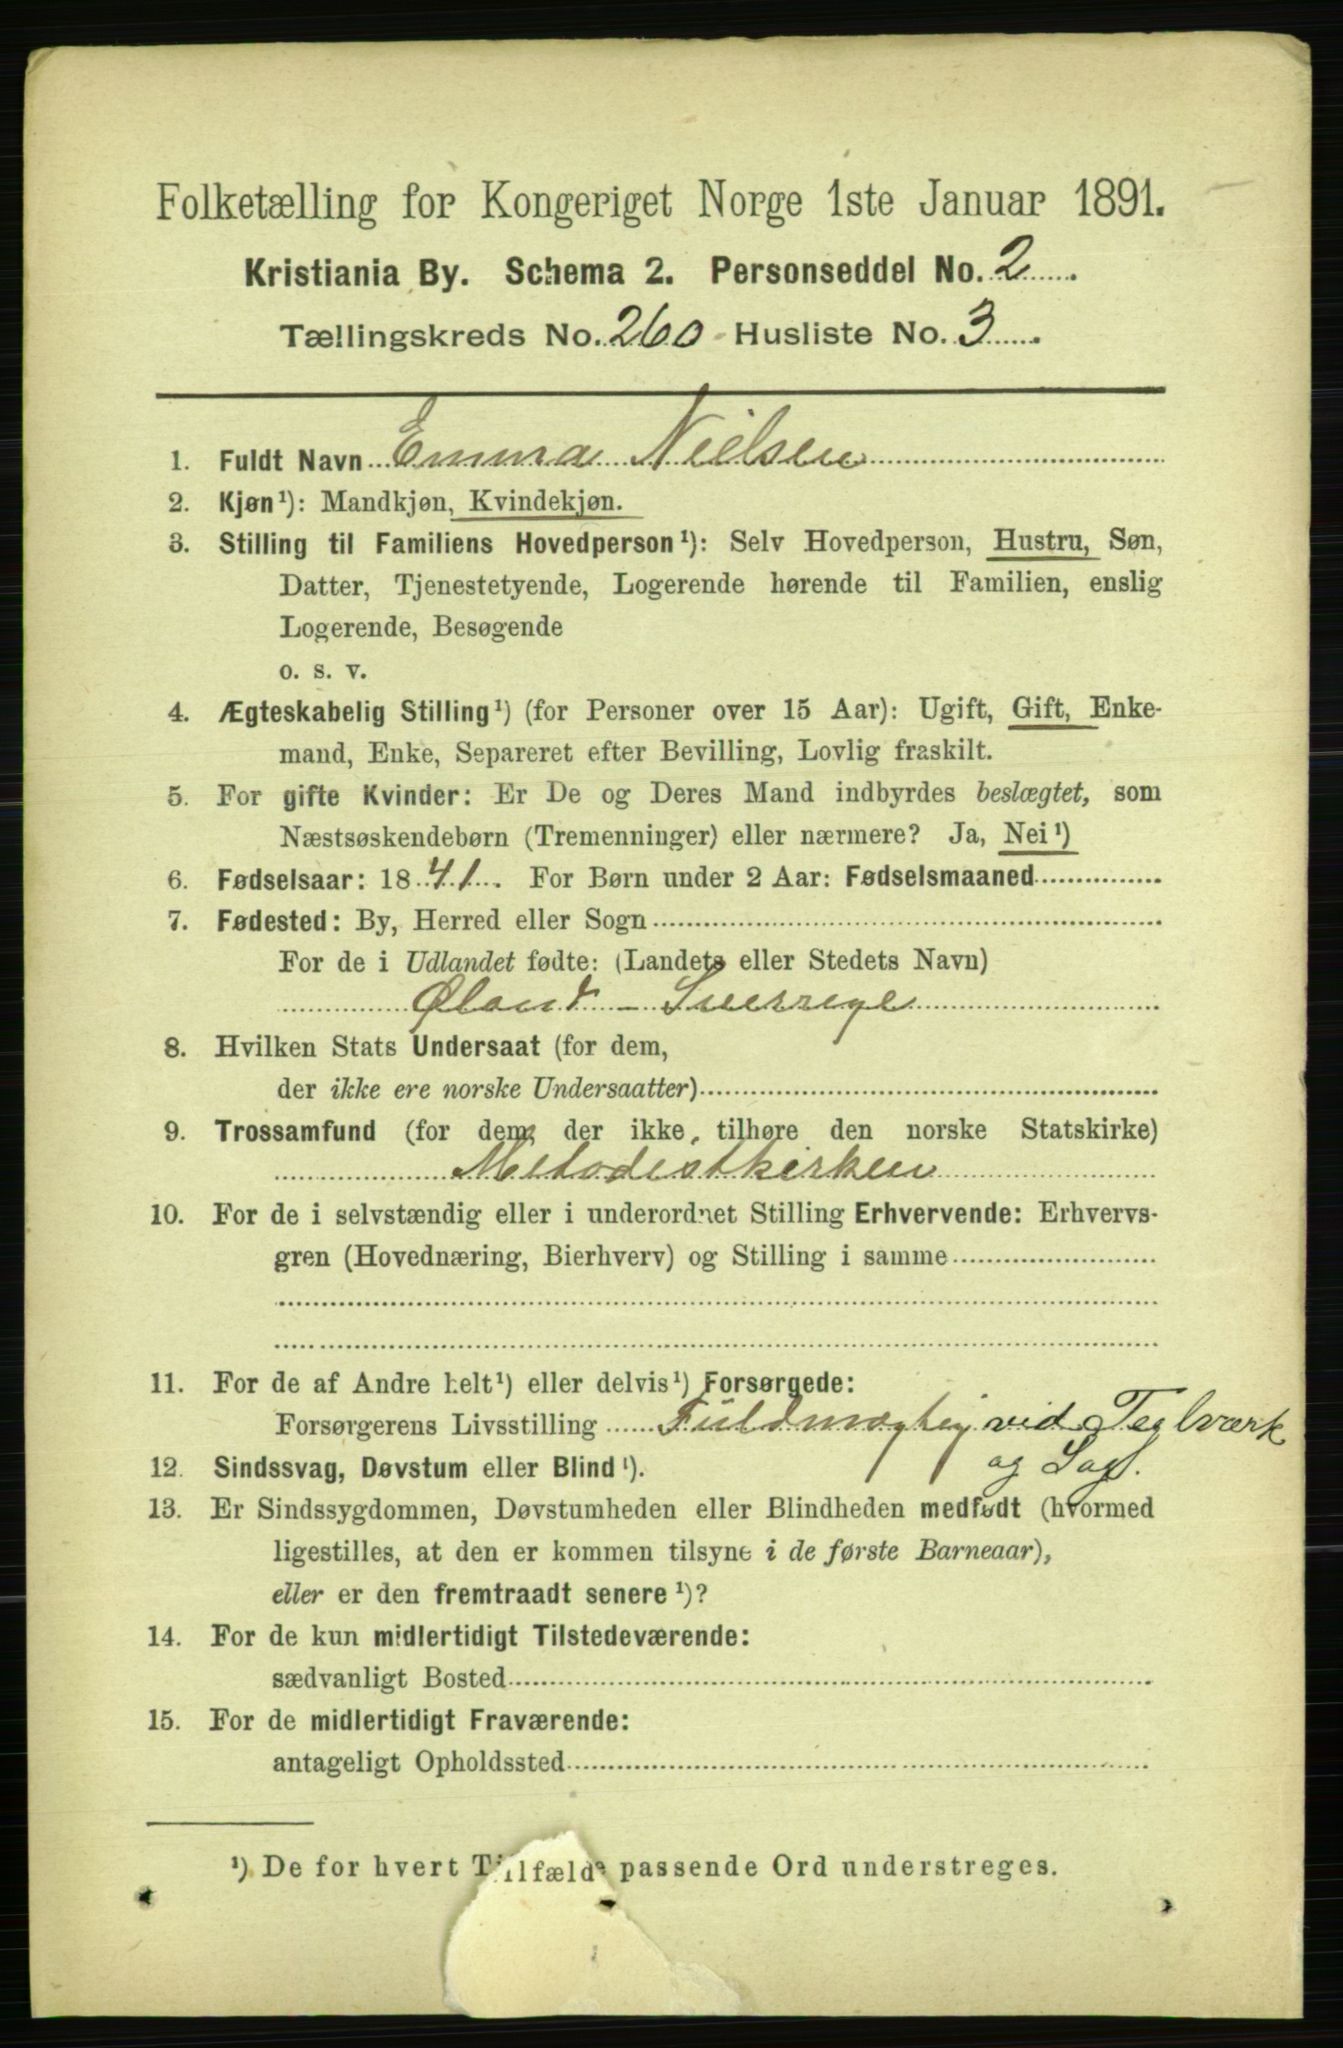 Folketælling for Kongeriget Norge 1ste Januar 1891.
Kristiania By. Schema 2. Personseddel No. 2
Tællingskreds No. 260 Husliste No. 3
1. Fuldt Navn Emma Nielsen
2. Kjøn¹): Mandkjøn, Kvindekjøn.
3. Stilling til Familiens Hovedperson¹): Selv Hovedperson, Hustru, Søn,
Datter, Tjenestetyende, Logerende hørende til Familien, enslig
Logerende, Besøgende
o. s. v.
4. Ægteskabelig Stilling¹) (for Personer over 15 Aar): Ugift, Gift, Enke-
mand, Enke, Separeret efter Bevilling, Lovlig fraskilt.
5. For gifte Kvinder: Er De og Deres Mand indbyrdes beslægtet, som
Næstsøskendebørn (Tremenninger) eller nærmere? Ja, Nei¹)
6. Fødselsaar: 1841. For Børn under 2 Aar: Fødselsmaaned
7. Fødested: By, Herred eller Sogn
For de i Udlandet fødte: (Landets eller Stedets Navn)
Øland - Sverrige
8. Hvilken Stats Undersaat (for dem,
der ikke ere norske Undersaatter)
9. Trossamfund (for dem, der ikke tilhøre den norske Statskirke)
Metodistkirken
10. For de i selvstændig eller i underordnet Stilling Erhvervende: Erhvervs-
gren (Hovednæring, Bierhverv) og Stilling i samme
11. For de af Andre helt¹) eller delvis¹) Forsørgede:
Forsørgerens Livsstilling Fuldmægtig vid Teglværk
og Sag.
12. Sindssvag, Døvstum eller Blind¹).
13. Er Sindssygdommen, Døvstumheden eller Blindheden medfødt (hvormed
ligestilles, at den er kommen tilsyne i de første Barneaar),
eller er den fremtraadt senere¹)?
14. For de kun midlertidigt Tilstedeværende:
sædvanligt Bosted
15. For de midlertidigt Fraværende:
antageligt Opholdssted
¹) De for hvert Tilfælde passende Ord understreges.